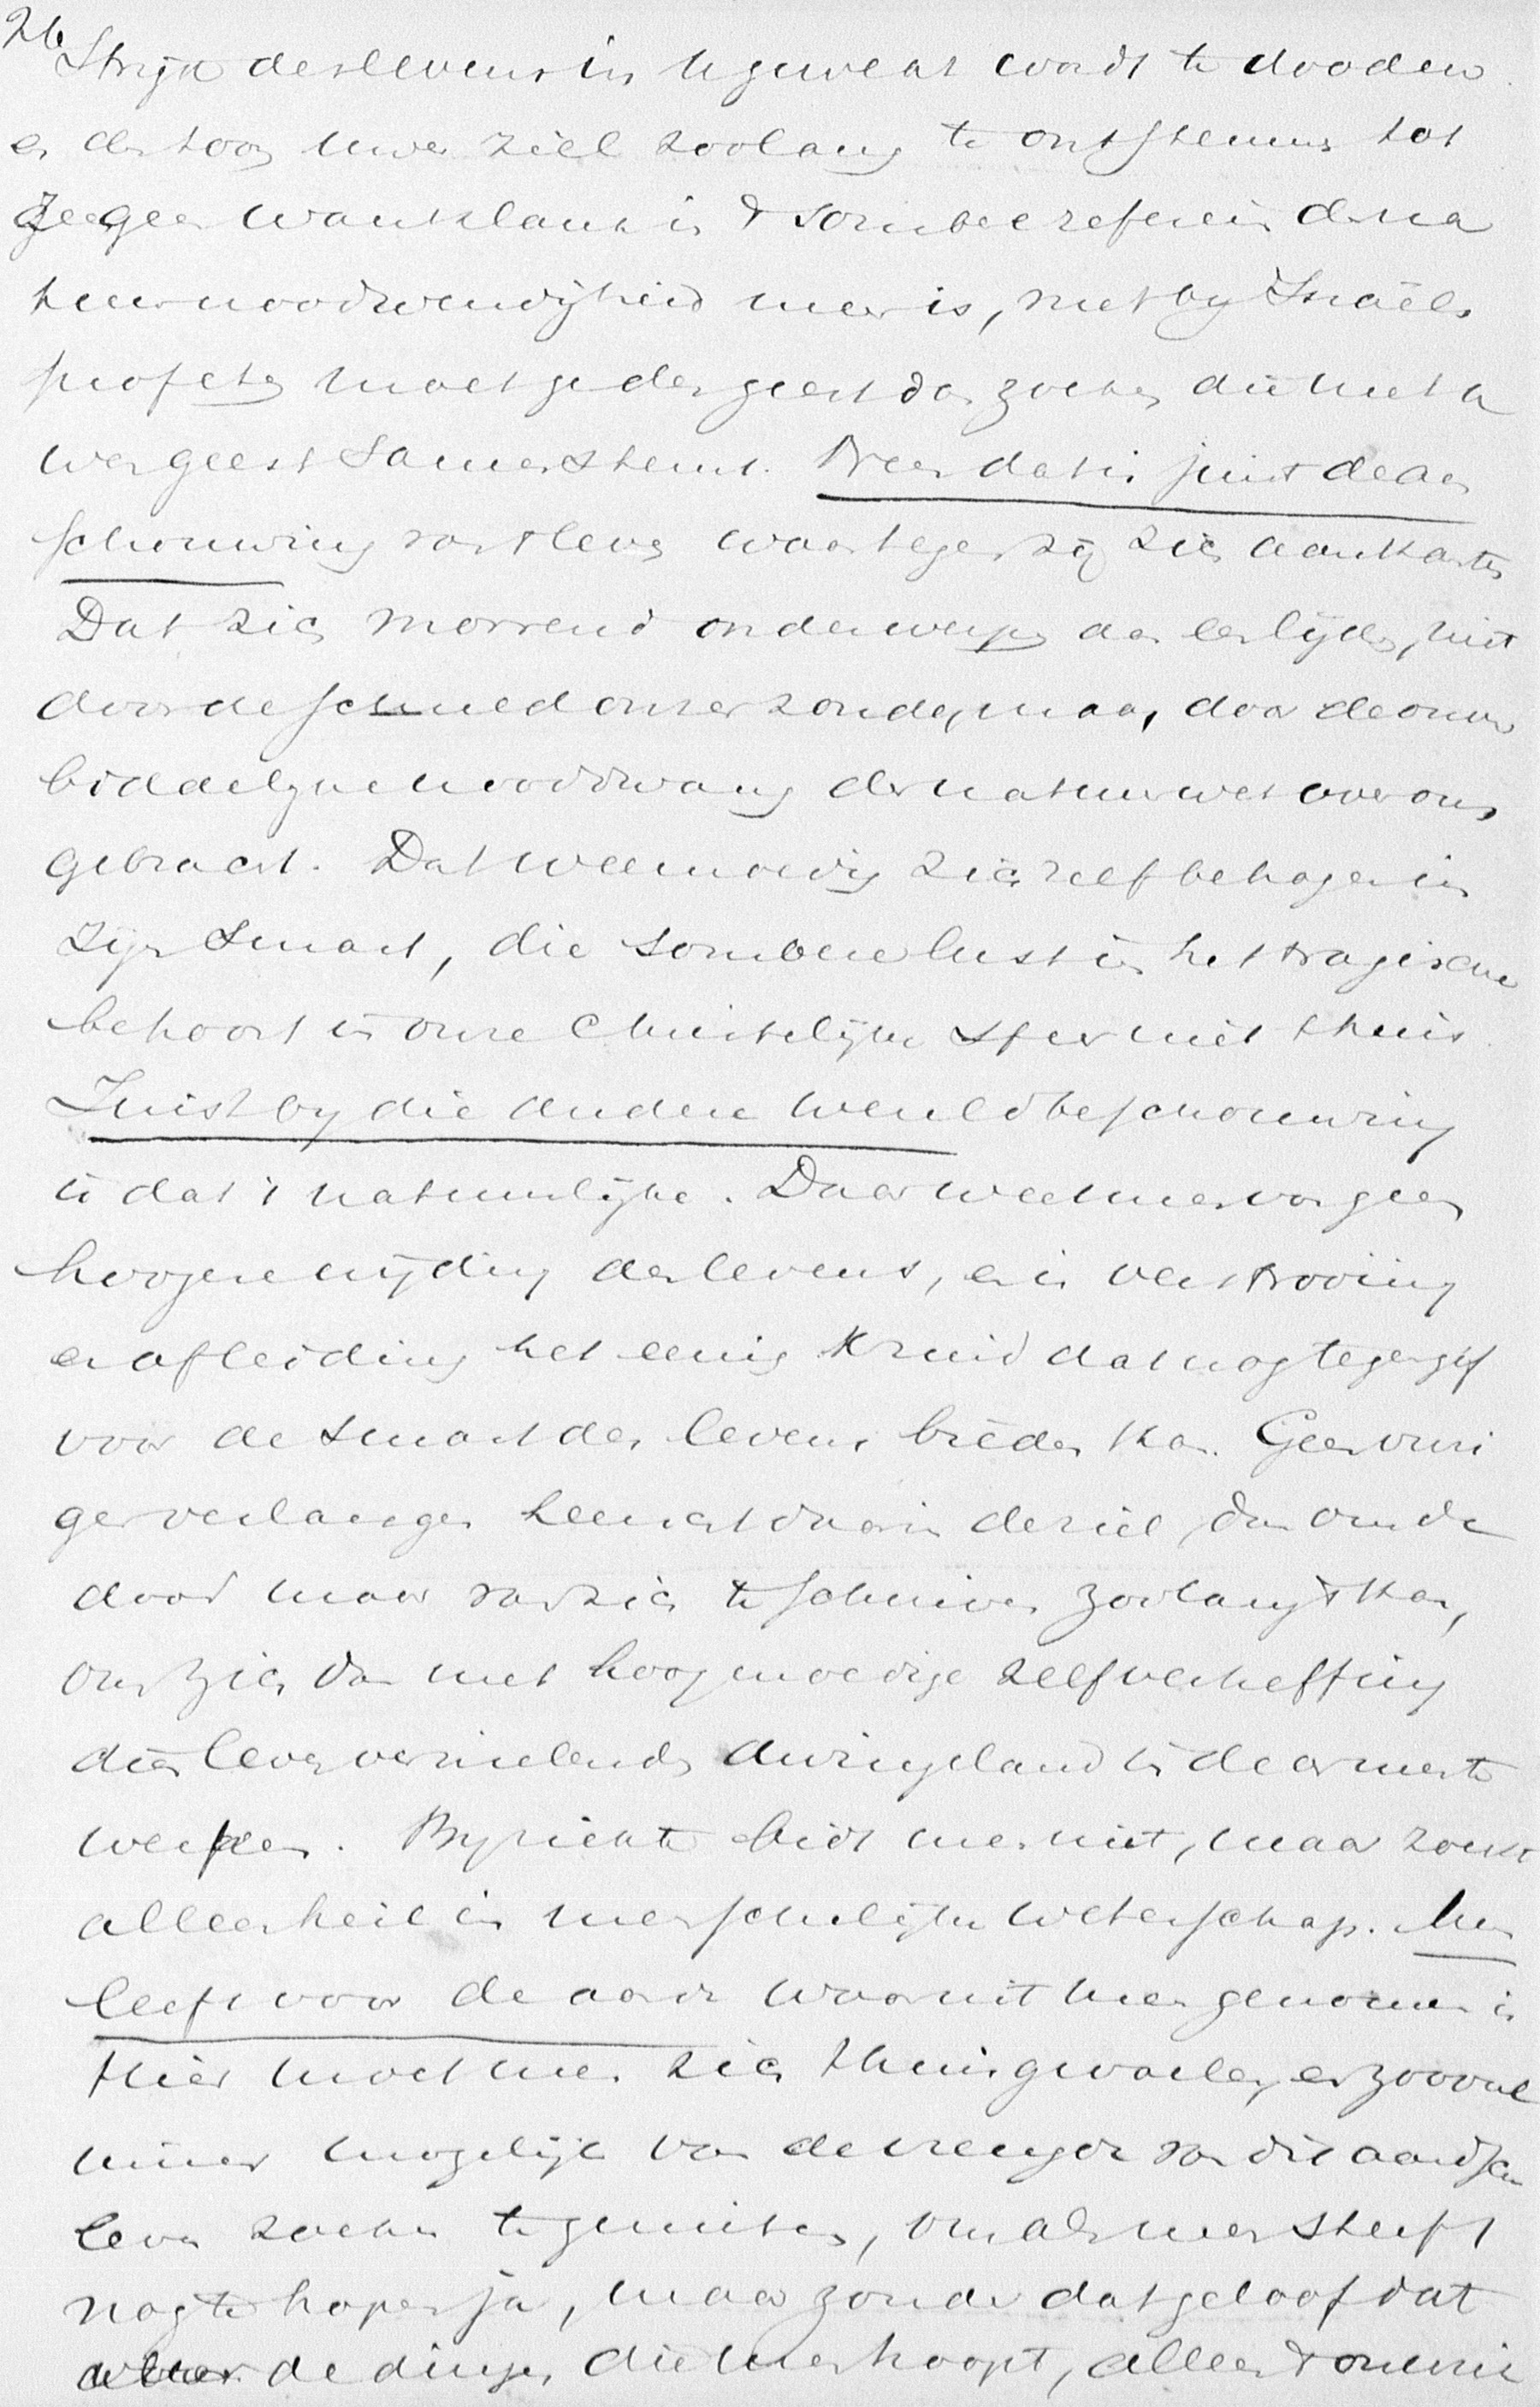 26
Strijd des levens in u geweld wordt te dooden
en den toon uwer ziel zoolang te ontstemmen tot
geen wanklank in 't sombee refrein dena
noodwendigheid meer is, niet by Israëls
profeten moet ge den geest dan zoeken die met u
wer geest samenstemt. Neen dat is juist de aan
schouwing van 't leven waartegen zij zich aankanten
Dat zich morrend onderwerpen aan een lijden, niet
door de schuld onzer zonde, maar door de onver
biddelyke noodwang der natuurwet over ons
gebracht. Dat weemoedig zich zelf behagen in
zijn smart, die sombere lust in het tragische
behoort in onze Christelijke sfeer niet thuis.
Juist by die andere wereldbeschouwing
is dat 't natuurlijke. Daar weet men van geen
hoogere wijding des levens, en is verstrooiing
en afleiding het eenig kruid dat nog tegengif
voor de smart des levens bieden kan. Geen vuri
ger verlangen heerscht daar in de ziel dan om de
dood maar van zich te schuiven zoolang 't kan,
om zich dan met hoogmoedige zelfverheffing
dien leven vernielenden dwingeland in de armen te
werpen. By ziekte bidt men niet, maar zoekt
alleen heil in menschelijke wetenschap. Men
leeft voor de aarde waaruit men genomen is
Hier moet men zich thuis gevoelen, en zooveel
immer mogelijk van de vreugde van dit aardsche
leven zoeken te genieten, om als men sterft
nog te hopen ja, maar zonder dat geloof dat
de dingen die men hoopt, alleen 't onwrik